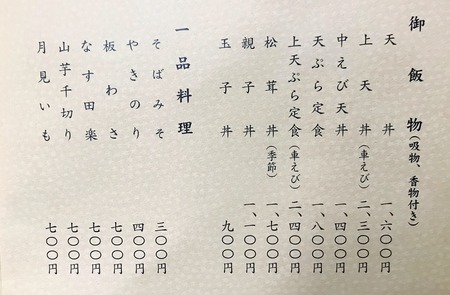 御飯物(吸物、香物付き)
天丼 一、六〇〇円
上天丼(車えび) 二、三〇〇円
中えび天丼 一、四〇〇円
天ぷら定食 一、八〇〇円
上天ぷら定食(車えび) 二、四〇〇円
松茸丼(季節) 一、七〇〇円
親子丼 一、一〇〇円
玉子丼 九〇〇円
一品料理
そばみそ 三〇〇円
やきのり 四〇〇円
板わさ 七〇〇円
なす田楽 七〇〇円
山芋千切り 七〇〇円
月見いも 七〇〇円